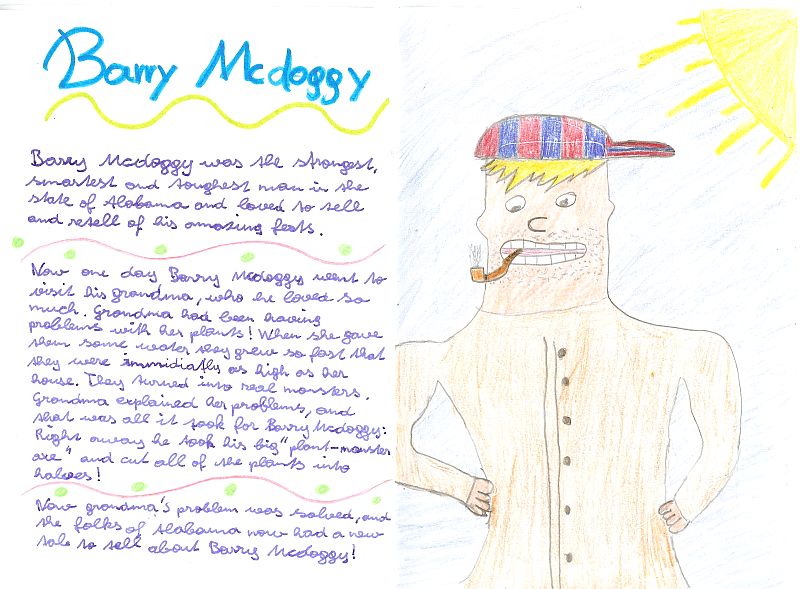 Barry Mcdoggy
Barry Mcdoggy was the strongest,
smartest and toughest man in the
state of Alabama and loved to tell
and retell of his amazing feats.
Now one day Barry Mcdoggy went to
visit his grandma, who he loved so
much. Grandma had been having
problems with her plants! When she gave
them some water they grew so fast that
they were immidiatly as high as her
house. They turned into real monsters.
Grandma explained her problems, and
that was all it took for Barry Mcdoggy:
Right away he took his big "plant-monster
axe" and cut all of the plants into
halves!
Now grandma's problem was solved, and
the folks of Alabama now had a new
tale to tell about Barry Mcdoggy!